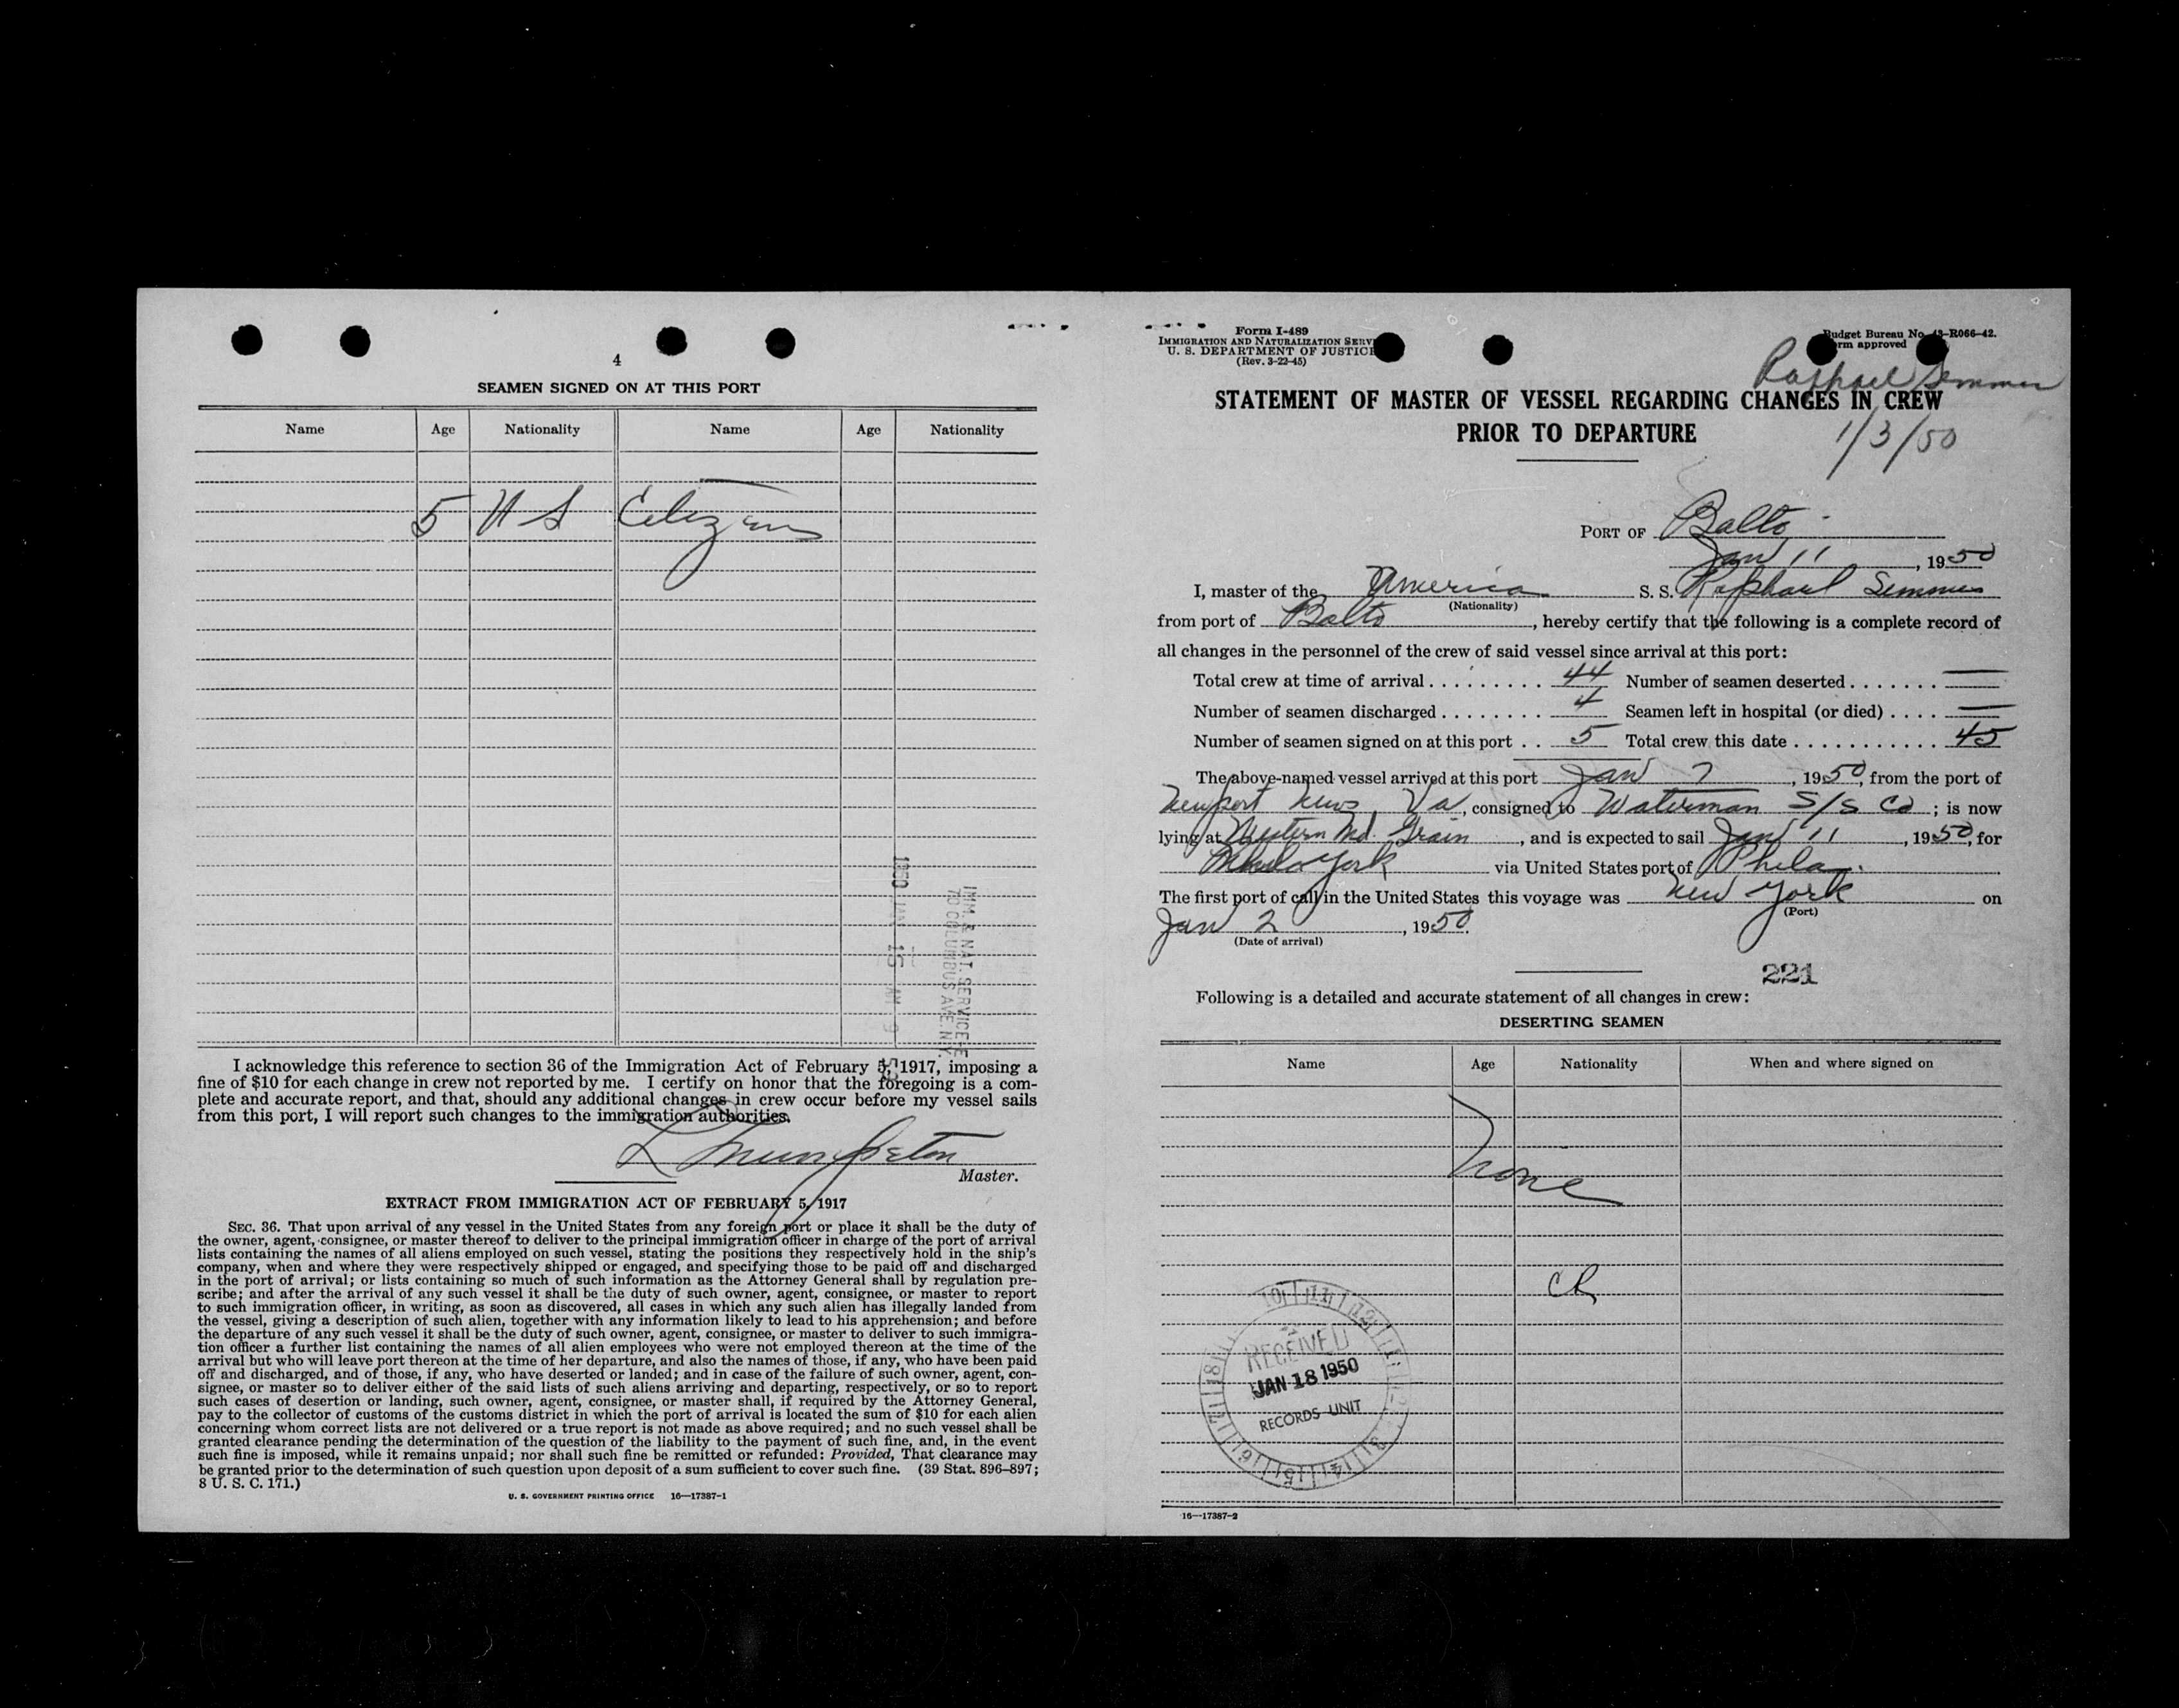 4
SEAMEN SIGNED ON AT THIS PORT
Name Age Nationality Name Age Nationality
5 U S Citizens
1950 JAN 15 AM 9
IMM. & NAT. SERVICE
70 COLUMBUS AVE. N.Y.
I acknowledge this reference to section 36 of the Immigration Act of February 5, 1917, imposing a
fine of $10 for each change in crew not reported by me. I certify on honor that the foregoing is a com-
plete and accurate report, and that, should any additional changes in crew occur before my vessel sails
from this port, I will report such changes to the immigration authorities.
L
Master.
EXTRACT FROM IMMIGRATION ACT OF FEBRUARY 5, 1917
SEC. 36. That upon arrival of any vessel in the United States from any foreign port or place it shall be the duty of
the owner, agent, consignee, or master thereof to deliver to the principal immigration officer in charge of the port of arrival
lists containing the names of all aliens employed on such vessel, stating the positions they respectively hold in the ship's
company, when and where they were respectively shipped or engaged, and specifying those to be paid off and discharged
in the port of arrival; or lists containing so much of such information as the Attorney General shall by regulation pre-
scribe; and after the arrival of any such vessel it shall be the duty of such owner, agent, consignee, or master to report
to such immigration officer, in writing, as soon as discovered, all cases in which any such alien has illegally landed from
the vessel, giving a description of such alien, together with any information likely to lead to his apprehension; and before
the departure of any such vessel it shall be the duty of such owner, agent, consignee, or master to deliver to such immigra-
tion officer a further list containing the names of all alien employees who were not employed thereon at the time of the
arrival but who will leave port thereon at the time of her departure, and also the names of those, if any, who have been paid
off and discharged, and of those, if any, who have deserted or landed; and in case of the failure of such owner, agent, con-
signee, or master so to deliver either of the said lists of such aliens arriving and departing, respectively, or so to report
such cases of desertion or landing, such owner, agent, consignee, or master shall, if required by the Attorney General,
pay to the collector of customs of the customs district in which the port of arrival is located the sum of $10 for each alien
concerning whom correct lists are not delivered or a true report is not made as above required; and no such vessel shall be
granted clearance pending the determination of the question of the liability to the payment of such fine, and, in the event
such fine is imposed, while it remains unpaid; nor shall such fine be remitted or refunded: Provided, That clearance may
be granted prior to the determination of such question upon deposit of a sum sufficient to cover such fine. (39 Stat. 896–897;
8 U. S. C. 171.)
U. S. GOVERNMENT PRINTING OFFICE 16—17387-1
Form I-489
IMMIGRATION AND NATURALIZATION SERV
U. S. DEPARTMENT OF JUSTIC
(Rev. 3-22-45)
Budget Bureau No. 43-R066-42.
rm approved
Raphael Semmes
STATEMENT OF MASTER OF VESSEL REGARDING CHANGES IN CREW
PRIOR TO DEPARTURE
1/3/50
PORT OF Balto
Jan 11, 1950
I, master of the America S. S. Raphael Semmes
(Nationality)
from port of Balto, hereby certify that the following is a complete record of
all changes in the personnel of the crew of said vessel since arrival at this port:
Total crew at time of arrival . . . . . . . . . 44 Number of seamen deserted . . . . . . . —
Number of seamen discharged . . . . . . . . 4 Seamen left in hospital (or died) . . . . —
Number of seamen signed on at this port . . 5 Total crew this date . . . . . . . . . . . . 45
The above-named vessel arrived at this port Jan 7, 1950, from the port of
Newport News, Va, consigned to Waterman S/S Co; is now
lying at Western Md. Grain, and is expected to sail Jan 11, 1950, for
York via United States port of Phila.
The first port of call in the United States this voyage was New York on
(Port)
Jan 2, 1950.
(Date of arrival)
221
Following is a detailed and accurate statement of all changes in crew:
DESERTING SEAMEN
Name Age Nationality When and where signed on
None
CR
RECEIVED
JAN 18 1950
RECORDS UNIT
16—17387-2